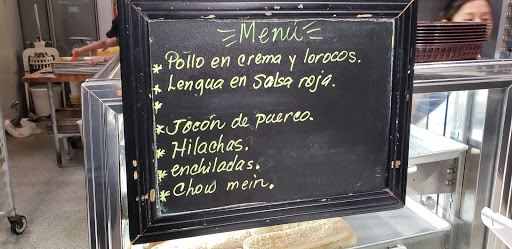 Menú
* Pollo en crema y lorocos.
* Lengua en Salsa roja.
*
* Jocón de puerco.
* Hilachas.
* enchiladas.
* Chow mein.